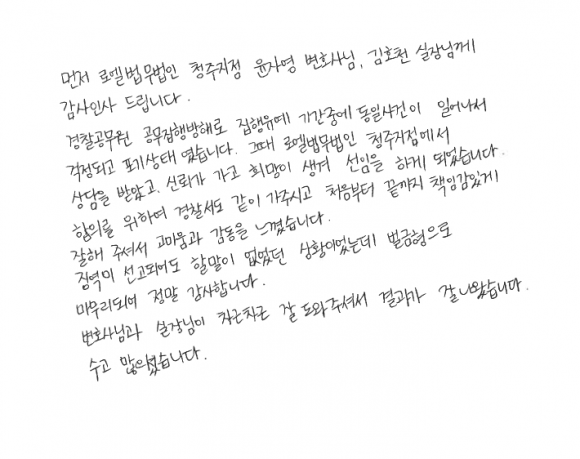 먼저 로엘법무법인 청주지점 윤자영 변호사님, 김호천 실장님께
감사인사 드립니다.
경찰공무원 공무집행방해로 집행유예 기간중에 동일사건이 일어나서
걱정되고 포기상태 였습니다. 그때 로엘법무법인 청주지점에서
상담을 받았고, 신뢰가 가고 희망이 생겨 선임을 하게 되었습니다.
합의를 위하여 경찰서도 같이 가주시고 처음부터 끝까지 책임감있게
잘해 주셔서 고마움과 감동을 느꼈습니다.
징역이 선고되어도 할말이 없었던 상황이었는데 벌금형으로
마무리되어 정말 감사합니다.
변호사님과 실장님이 차근차근 잘 도와주셔서 결과가 잘 나왔습니다.
수고 많으셨습니다.